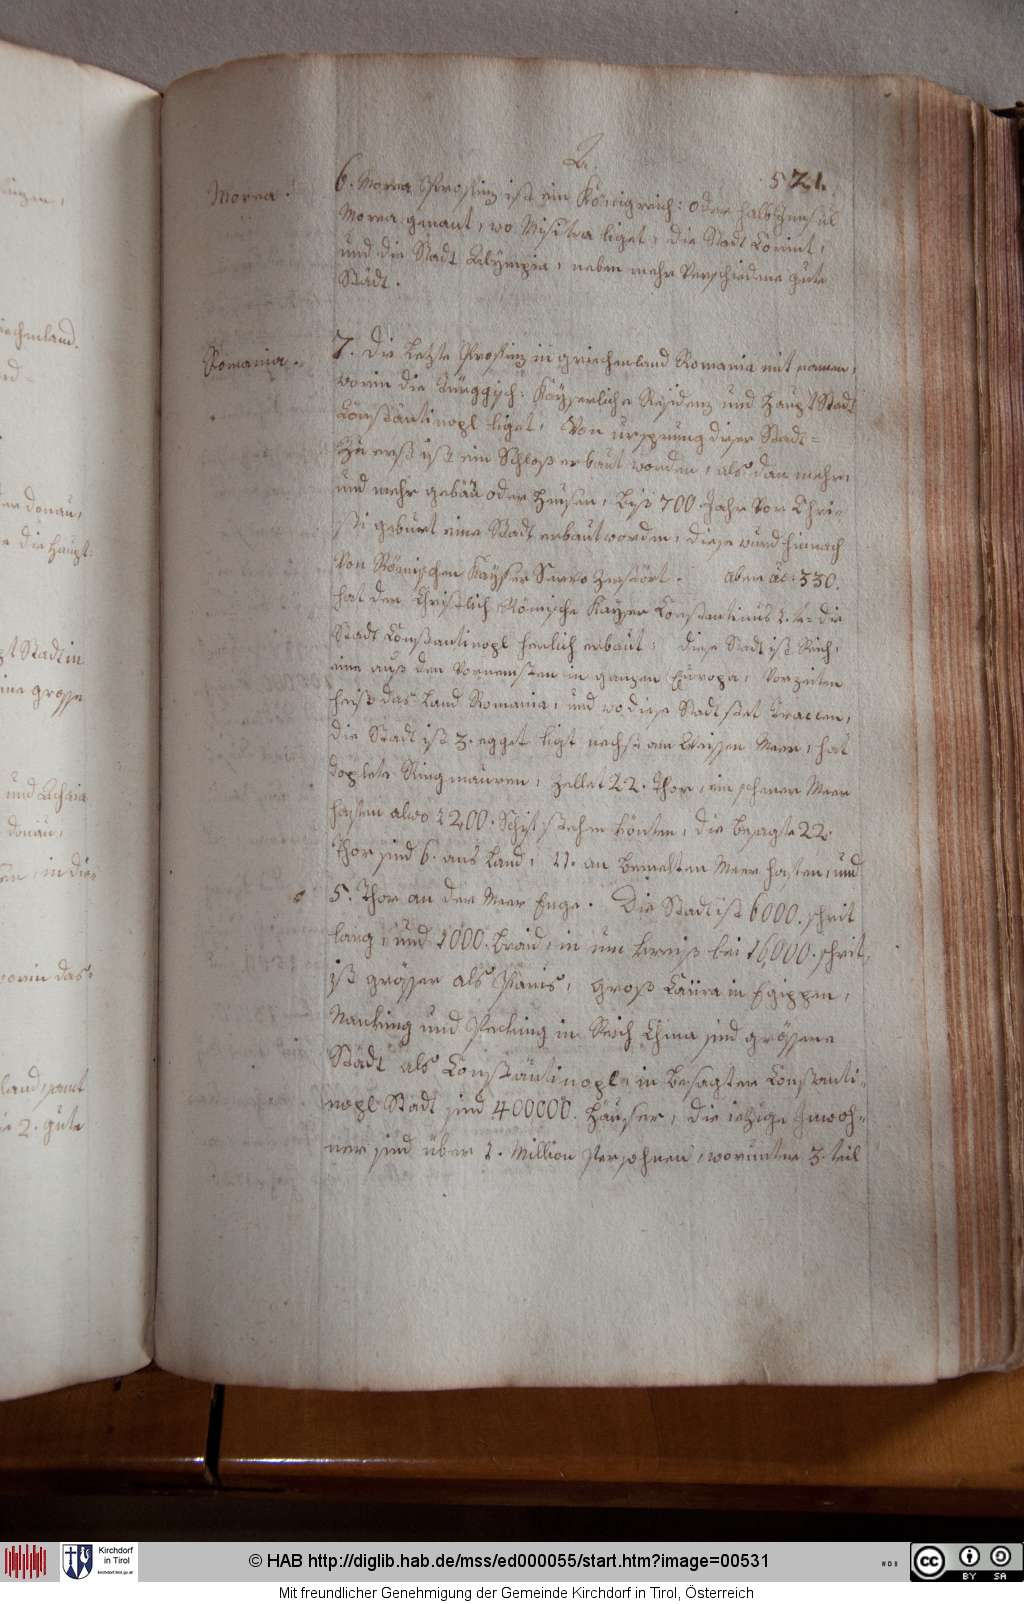 521.
Morea.
6. Morea Profinz ist ein Königreich: oder halb Jnsul
Morea genant, wo Misitra liget, die Stadt Corint,
und die Stadt Olÿmpia, neben mehr verschiedene gute
Städt.
Romania.
7. Die Letste Profinz in griechenland Romania mit namen,
worin die Türggisch: Kaÿserliche Residenz und Haupt Stadt
Constäntinopl liget, Von ursprung diser Stadt=
Zu erst ist ein Schloß erbaut worden, als dan mehr,
und mehr gebäu oder Heuser, biß 700 Jahr vor Chri=
sti geburt eine Stadt erbaut worden, diese wurd hinnach
von Römischen Kaÿser Servo zerstört. aber ao: 330.
hat der Christlich Römische Kayser Constantinus 1.te die
Stadt Constantinopl herlich erbaut: diese Stadt ist Reich,
eine auß den Vornemsten in ganzen Europa, Vorzeiten
heist das Land Romania, und wo diese Stadt steet Tracien,
die Stadt ist 3. egget ligt nechst am Weissen Meer, hat
doplete Ringmauren, zellet 22. Thor, ein schener Meer
hafen alwo 1200. Schif stehen könten, die besagte 22.
Thor sind 6. ans Land, 11. an bemelten Meer hafen, und
5. Thor an der Meer Enge. Die Stadt ist 6000. schrit
lang, und 1000. braid, in um kreiß bei 16,000. schrit,
ist grösser als Paris, groß Caira in Egippen,
Nanking und Pecking in Reich China sind grössere
Städt als Constäntinopl, in besagter Constanti=
nopl Stadt sind 400000. Häusser, die ietzige Jnwoh=
ner sind über 1. Million Persohnen, worunter 3. teil
iechenland.
er donau,
e die Haupt:
pt Stadt in
eine grosse
und Achaia
donau,
en, in die
worin das:
land, samt
2. gute
Kirchdorf
in Tirol
kirchdorf.tirol.gv.at
© HAB http://diglib.hab.de/mss/ed000055/start.htm?image=00531
WDB
cc
BY SA
Mit freundlicher Genehmigung der Gemeinde Kirchdorf in Tirol, Österreich